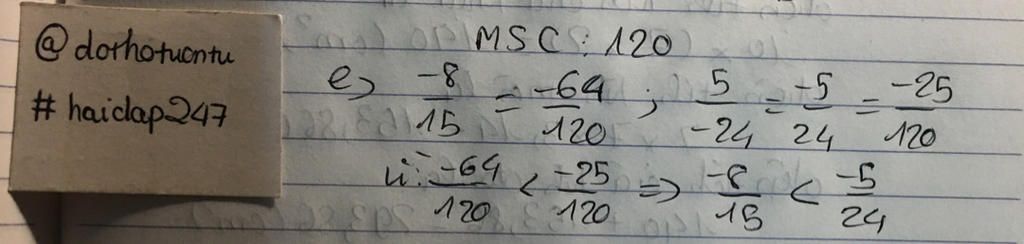 @dothotuontu
# haidap247
MSC: 120
e) -8/15 = -64/120 ; 5/-24 = -5/24 = -25/120
Vì: -64/120 < -25/120 => -8/15 < -5/24